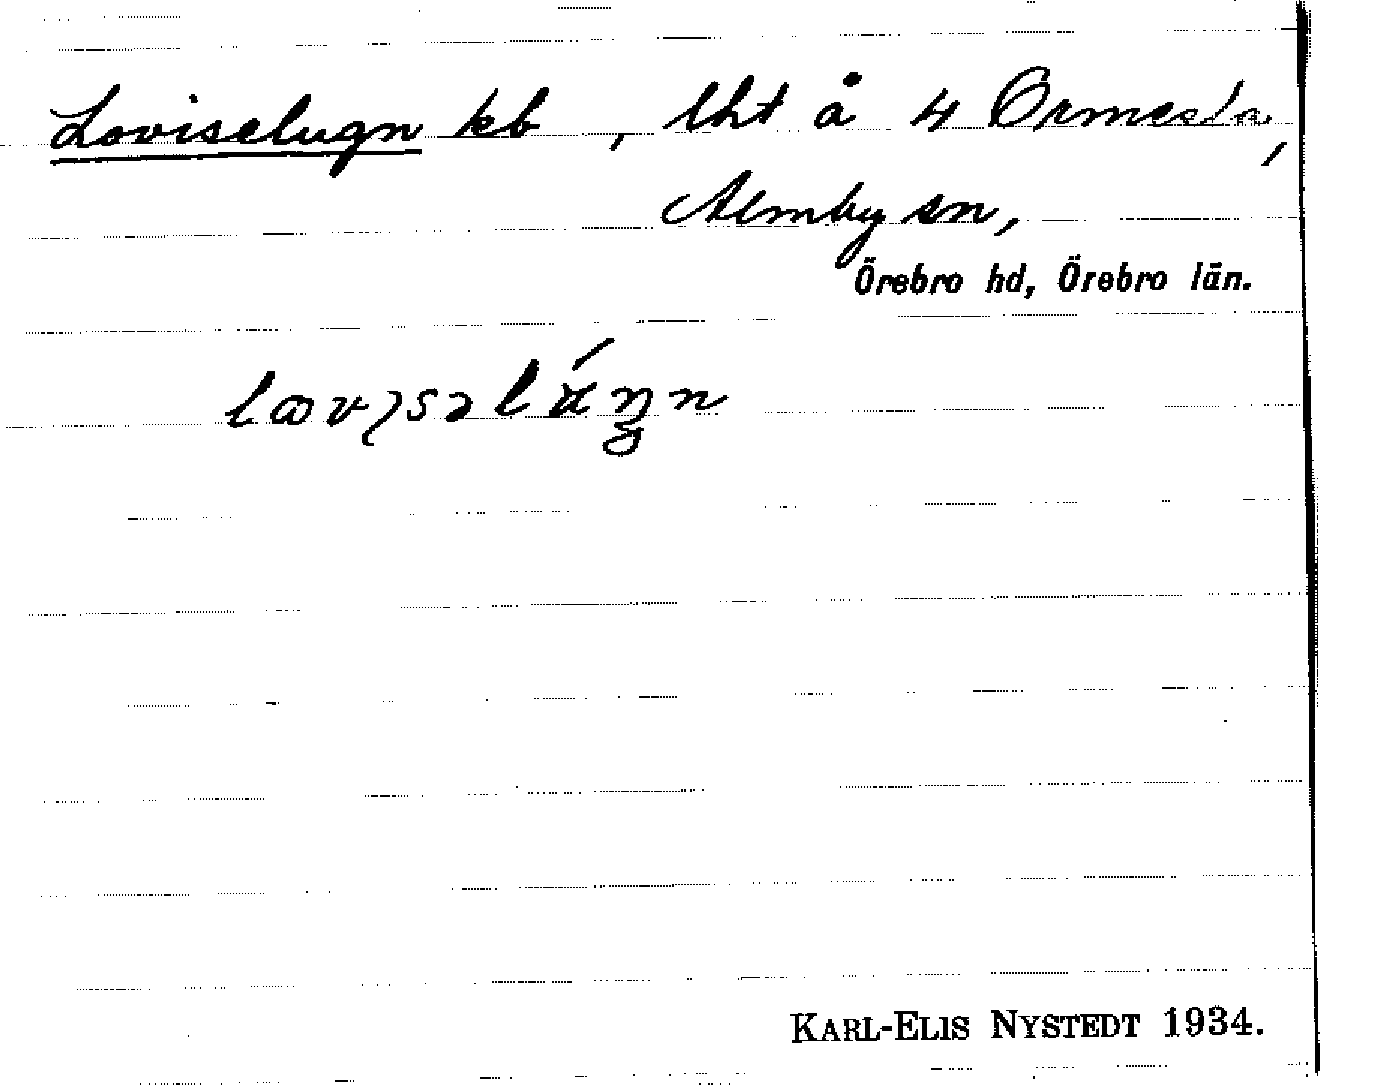 Loviselugn kb, lht å 4 Ormesta,
Almby sn,
Örebro hd, Örebro län.
KARL-ELIS NYSTEDT 1934.